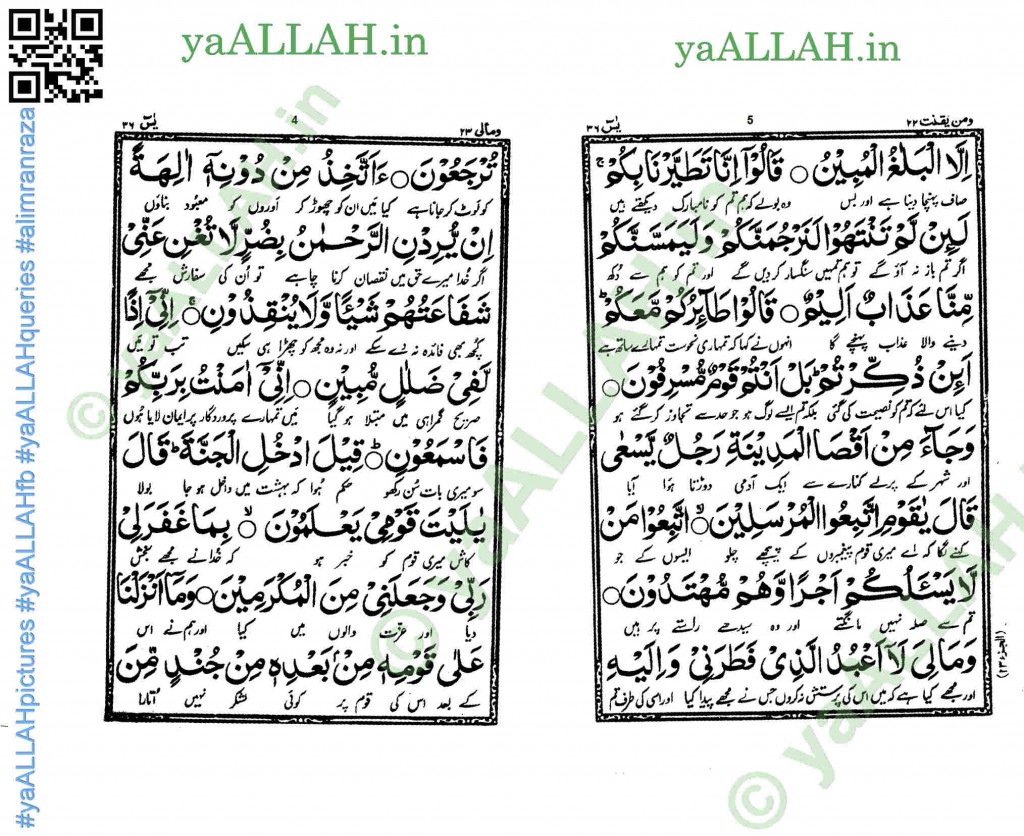 yaALLAH.in
yaALLAH.in
#yaALLAHpictures #yaALLAHfb #yaALLAHqueries #alimranraza
ومن یقنت ۲۲
5
یٰسٓ ۳۶
اِلَّا الْبَلٰغُ الْمُبِيْنُ ○ قَالُوْٓا اِنَّا تَطَيَّرْنَا بِكُمْ ۚ
صاف پہنچا دینا ہے اور بس وہ بولے کہ ہم تم کو نامبارک دیکھتے ہیں
لَىِٕنْ لَّمْ تَنْتَهُوْا لَنَرْجُمَنَّكُمْ وَلَيَمَسَّنَّكُمْ
اگر تم باز نہ آؤ گے تو ہم تمہیں سنگسار کر دیں گے اور تم کو ہم سے دکھ
مِّنَّا عَذَابٌ اَلِيْمٌ ○ قَالُوْا طَآىِٕرُكُمْ مَّعَكُمْ ؕ
دینے والا عذاب پہنچے گا انہوں نے کہا کہ تمہاری نحوست تمہارے ساتھ ہے
اَىِٕنْ ذُكِّرْتُمْ ؕ بَلْ اَنْتُمْ قَوْمٌ مُّسْرِفُوْنَ ○
کیا اس لئے کہ تم کو نصیحت کی گئی بلکہ تم ایسے لوگ ہو جو حد سے تجاوز کر گئے ہو
وَجَآءَ مِنْ اَقْصَا الْمَدِيْنَةِ رَجُلٌ يَّسْعٰى
اور شہر کے پرلے کنارے سے ایک آدمی دوڑتا ہوا آیا
قَالَ يٰقَوْمِ اتَّبِعُوا الْمُرْسَلِيْنَ ۙ○ اتَّبِعُوْا مَنْ
کہنے لگا کہ اے میری قوم پیغمبروں کے پیچھے چلو ایسوں کے جو
لَّا يَسْـَٔلُكُمْ اَجْرًا وَّهُمْ مُّهْتَدُوْنَ ○
تم سے صلہ نہیں مانگتے اور وہ سیدھے راستے پر ہیں
وَمَا لِيَ لَآ اَعْبُدُ الَّذِيْ فَطَرَنِيْ وَاِلَيْهِ
اور مجھے کیا ہے کہ میں اس کی پرستش نہ کروں جس نے مجھے پیدا کیا اور اسی کی طرف تم
(الجزء۲۳)
ومالی ۲۳
4
یٰسٓ ۳۶
تُرْجَعُوْنَ ○ ءَاَتَّخِذُ مِنْ دُوْنِهٖٓ اٰلِهَةً
کو لوٹ کر جانا ہے کیا میں ان کو چھوڑ کر اَوروں کو معبود بناؤں
اِنْ يُّرِدْنِ الرَّحْمٰنُ بِضُرٍّ لَّا تُغْنِ عَنِّيْ
اگر خدا میرے حق میں نقصان کرنا چاہے تو اُن کی سفارش مجھے
شَفَاعَتُهُمْ شَيْـًٔا وَّلَا يُنْقِذُوْنِ ۚ○ اِنِّيْٓ اِذًا
کچھ بھی فائدہ نہ دے سکے اور نہ وہ مجھ کو چھڑا ہی سکیں تب تو میں
لَّفِيْ ضَلٰلٍ مُّبِيْنٍ ○ اِنِّيْٓ اٰمَنْتُ بِرَبِّكُمْ
صریح گمراہی میں مبتلا ہو گیا میں تمہارے پروردگار پر ایمان لایا ہوں
فَاسْمَعُوْنِ ؕ○ قِيْلَ ادْخُلِ الْجَنَّةَ ؕ قَالَ
سو میری بات سُن رکھو حکم ہُوا کہ بہشت میں داخل ہو جا بولا
يٰلَيْتَ قَوْمِيْ يَعْلَمُوْنَ ۙ○ بِمَا غَفَرَ لِيْ
کاش میری قوم کو خبر ہو کہ خُدا نے مجھے بخش
رَبِّيْ وَجَعَلَنِيْ مِنَ الْمُكْرَمِيْنَ ○ وَمَآ اَنْزَلْنَا
دیا اور عزت والوں میں کیا اور ہم نے اس
عَلٰى قَوْمِهٖ مِنْۢ بَعْدِهٖ مِنْ جُنْدٍ مِّنَ
کے بعد اس کی قوم پر کوئی لشکر نہیں اُتارا
© yaALLAH.in
© yaALLAH.in
© yaALLAH.in
© yaALLAH